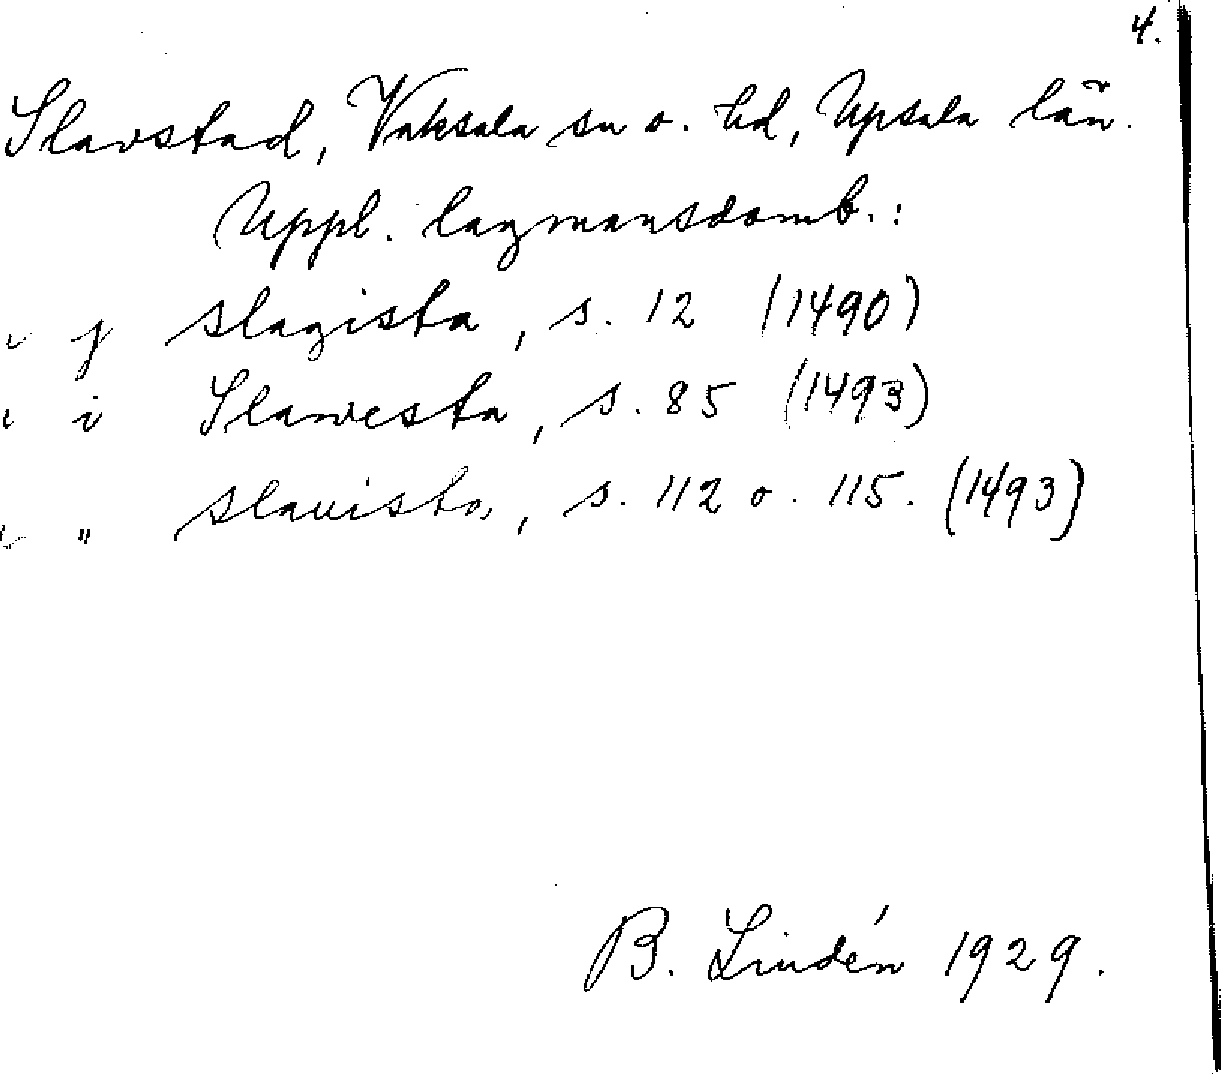 4.
Slavstad, Vaksala sn o. hd, Upsala län.
Uppl. lagmansdomb.:
j slagista, s. 12 (1490)
i Slawesta, s. 85 (1493)
" slauista, s. 112 o. 115. (1493)
B. Lindén 1929.